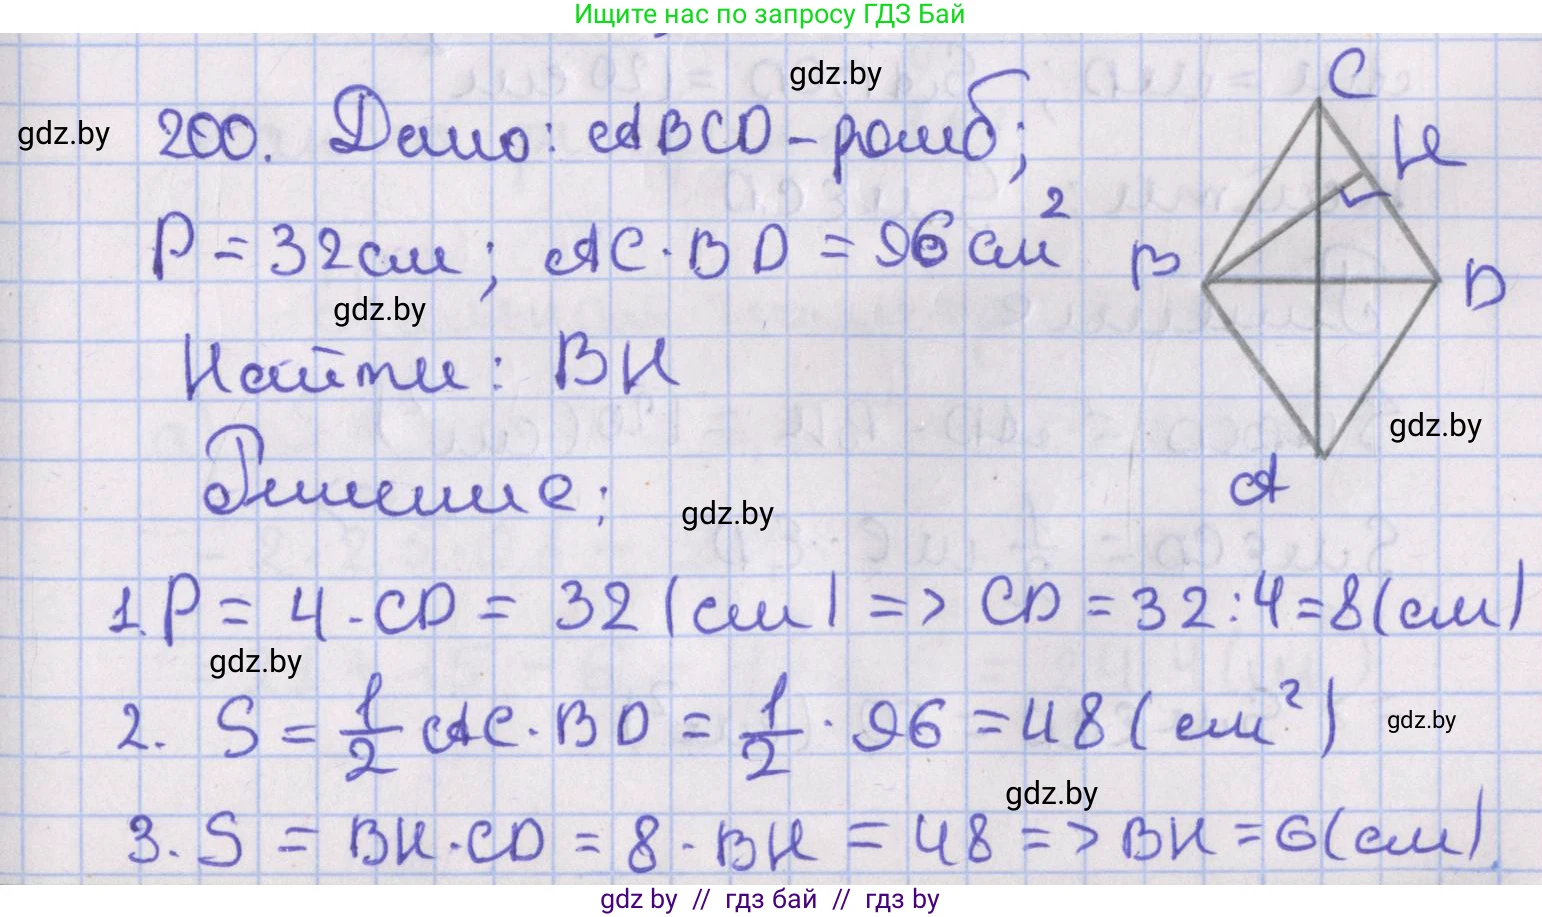 Ищите нас по запросу ГДЗ Бай
gdz.by
gdz.by
200. Дано: ABCD - ромб;
P = 32 см; AC · BD = 96 см²
gdz.by
Найти: BH
Решение:
gdz.by
C
H
B
D
gdz.by
A
1. P = 4 · CD = 32 (см) => CD = 32 : 4 = 8 (см)
gdz.by
2. S = 1/2 AC · BD = 1/2 · 96 = 48 (см²)
gdz.by
gdz.by
3. S = BH · CD = 8 · BH = 48 => BH = 6 (см).
gdz by // гдз бай // гдз by